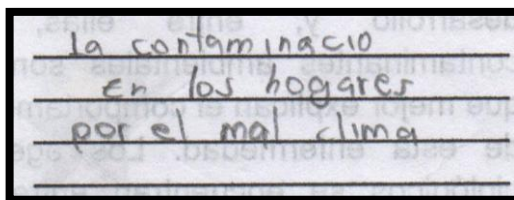 la contaminacio
En los hogares
por el mal clima